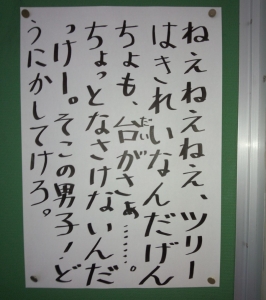 ねえねえねえ、ツリー
はきれいなんだげん
ちょも、台がさぁ……。
だい
ちょっとなさけないんだ
っけー。そこの男子！ど
うにかしてけろ。